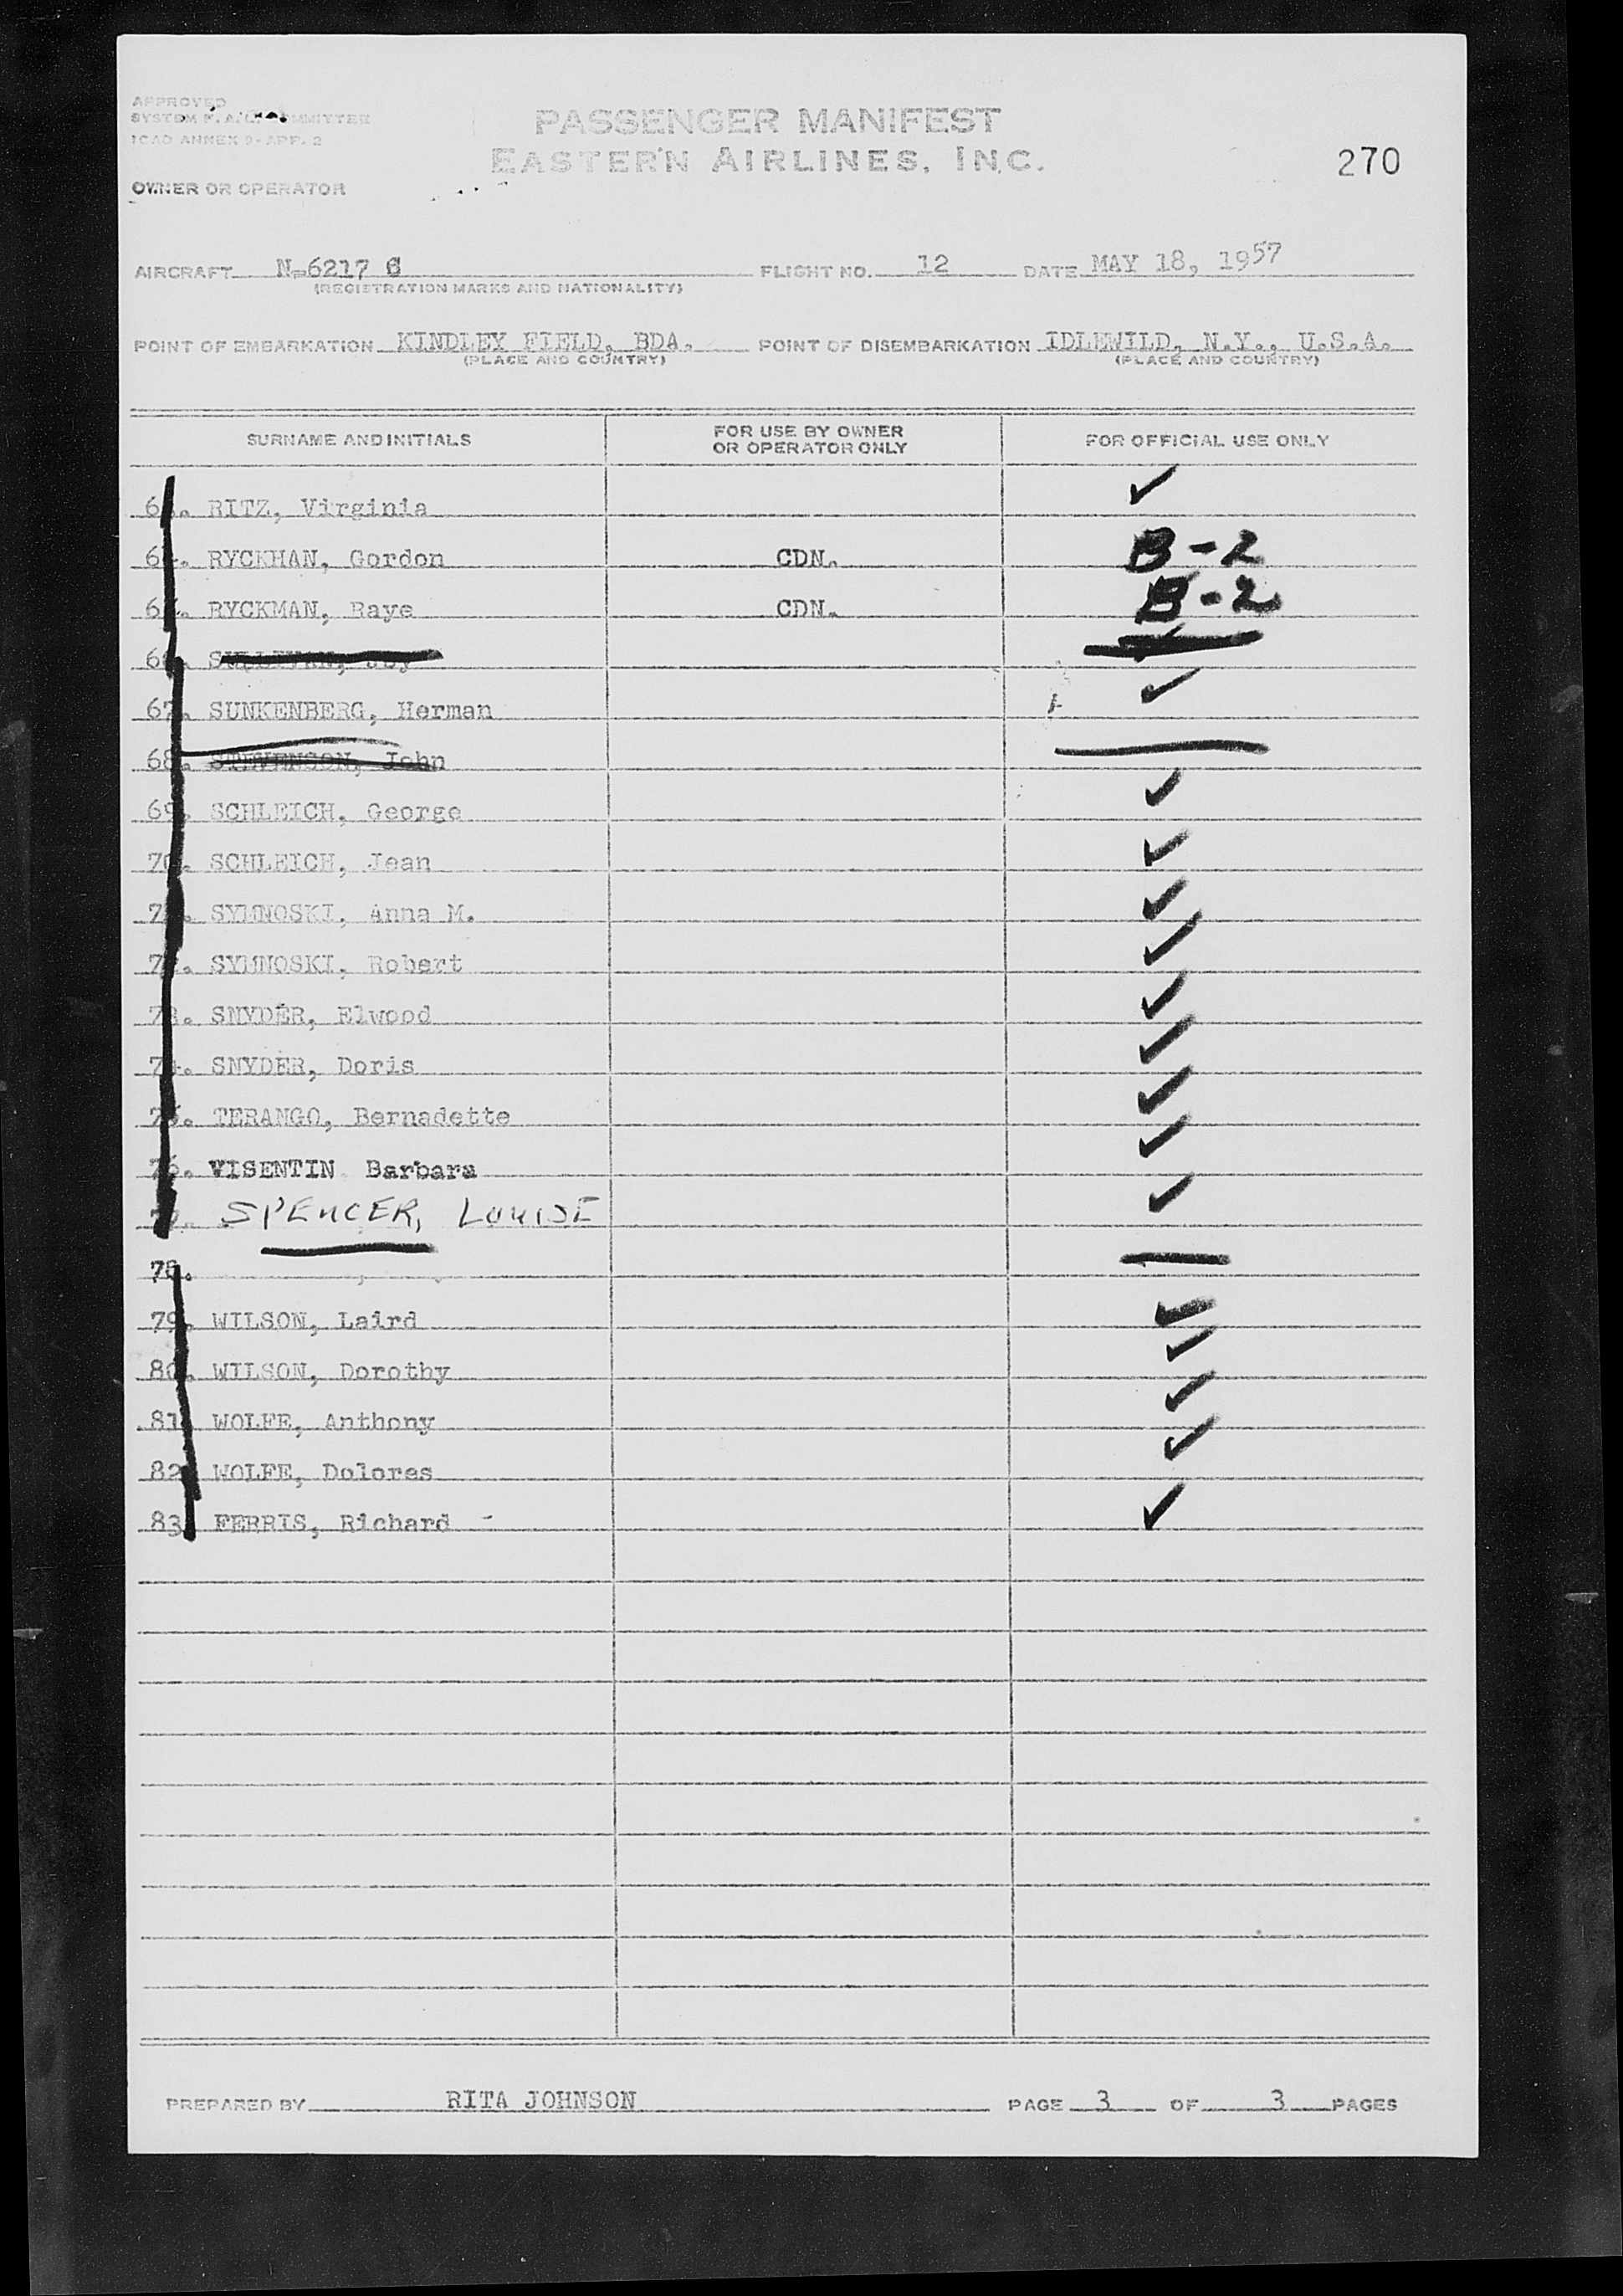 APPROVED
SYSTEM F.A.L. COMMITTEE
ICAO ANNEX 9-APP. 2
PASSENGER MANIFEST
EASTERN AIRLINES, INC.
270
OWNER OR OPERATOR
AIRCRAFT N-6217 C FLIGHT NO. 12 DATE MAY 18, 1957
(REGISTRATION MARKS AND NATIONALITY)
POINT OF EMBARKATION KINDLEY FIELD, BDA. POINT OF DISEMBARKATION IDLEWILD, N.Y., U.S.A.
(PLACE AND COUNTRY) (PLACE AND COUNTRY)
SURNAME AND INITIALS FOR USE BY OWNER OR OPERATOR ONLY FOR OFFICIAL USE ONLY
63. RITZ, Virginia ✓
64. RYCKHAN, Gordon CDN. B-2
65. RYCKMAN, Raye CDN. B-2
66.
67. SUNKENBERG, Herman ✓
68. STEVENSON, John
69. SCHLEICH, George ✓
70. SCHLEICH, Jean ✓
71. SYMNOSKI, Anna M. ✓
72. SYMNOSKI, Robert ✓
73. SNYDER, Elwood ✓
74. SNYDER, Doris ✓
75. TERANGO, Bernadette ✓
76. VISENTIN Barbara ✓
77. SPENCER, LOUISE ✓
78.
79. WILSON, Laird ✓
80. WILSON, Dorothy ✓
81. WOLFE, Anthony ✓
82. WOLFE, Dolores ✓
83. FERRIS, Richard - ✓
PREPARED BY RITA JOHNSON PAGE 3 OF 3 PAGES